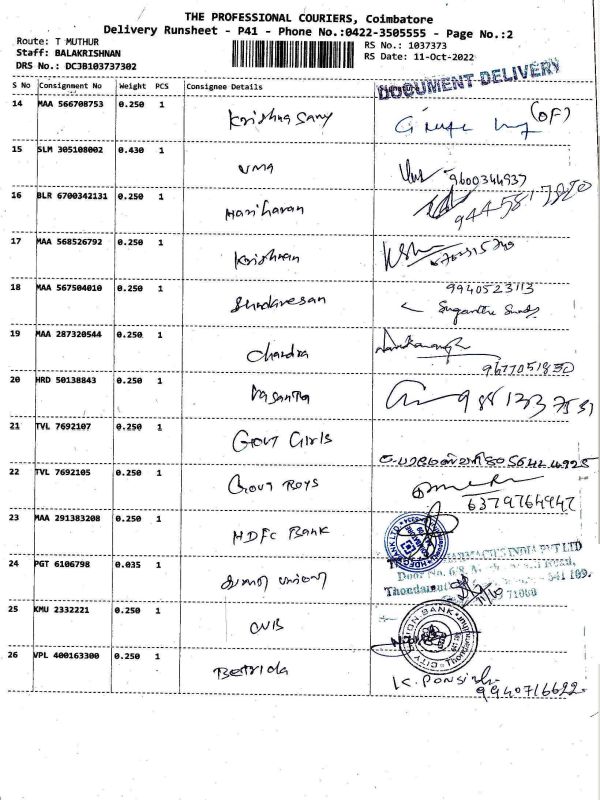 THE PROFESSIONAL COURIERS, Coimbatore
Delivery Runsheet - P41 - Phone No.:0422-3505555 - Page No.:2
Route: T MUTHUR
RS No.: 1037373
Staff: BALAKRISHNAN
RS Date: 11-Oct-2022
DRS No.: DCJB103737302
DOCUMENT DELIVERY
S No Consignment No Weight PCS Consignee Details
14 MAA 566708753 0.250 1 Krishna Samy (OF)
15 SLM 305108002 0.430 1 UMA 9600344937
16 BLR 6700342131 0.250 1 Hariharan 9445817820
17 MAA 568526792 0.250 1 Krishnan
18 MAA 567504010 0.250 1 Sundaresan 9940523113
19 MAA 287320544 0.250 1 Chandra 9677051830
20 HRD 50138843 0.250 1 Vasantha
21 TVL 7692107 0.250 1 Govt Girls
22 TVL 7692105 0.250 1 Govt Boys 6379764947
23 MAA 291383208 0.250 1 HDFC Bank
24 PGT 6106798 0.035 1
PHARMACIES INDIA PVT LTD
Door No.
641 109.
71060
25 KMU 2332221 0.250 1 CUB
CITY UNION BANK
26 VPL 400163300 0.250 1 K. Ponsi
9940716622